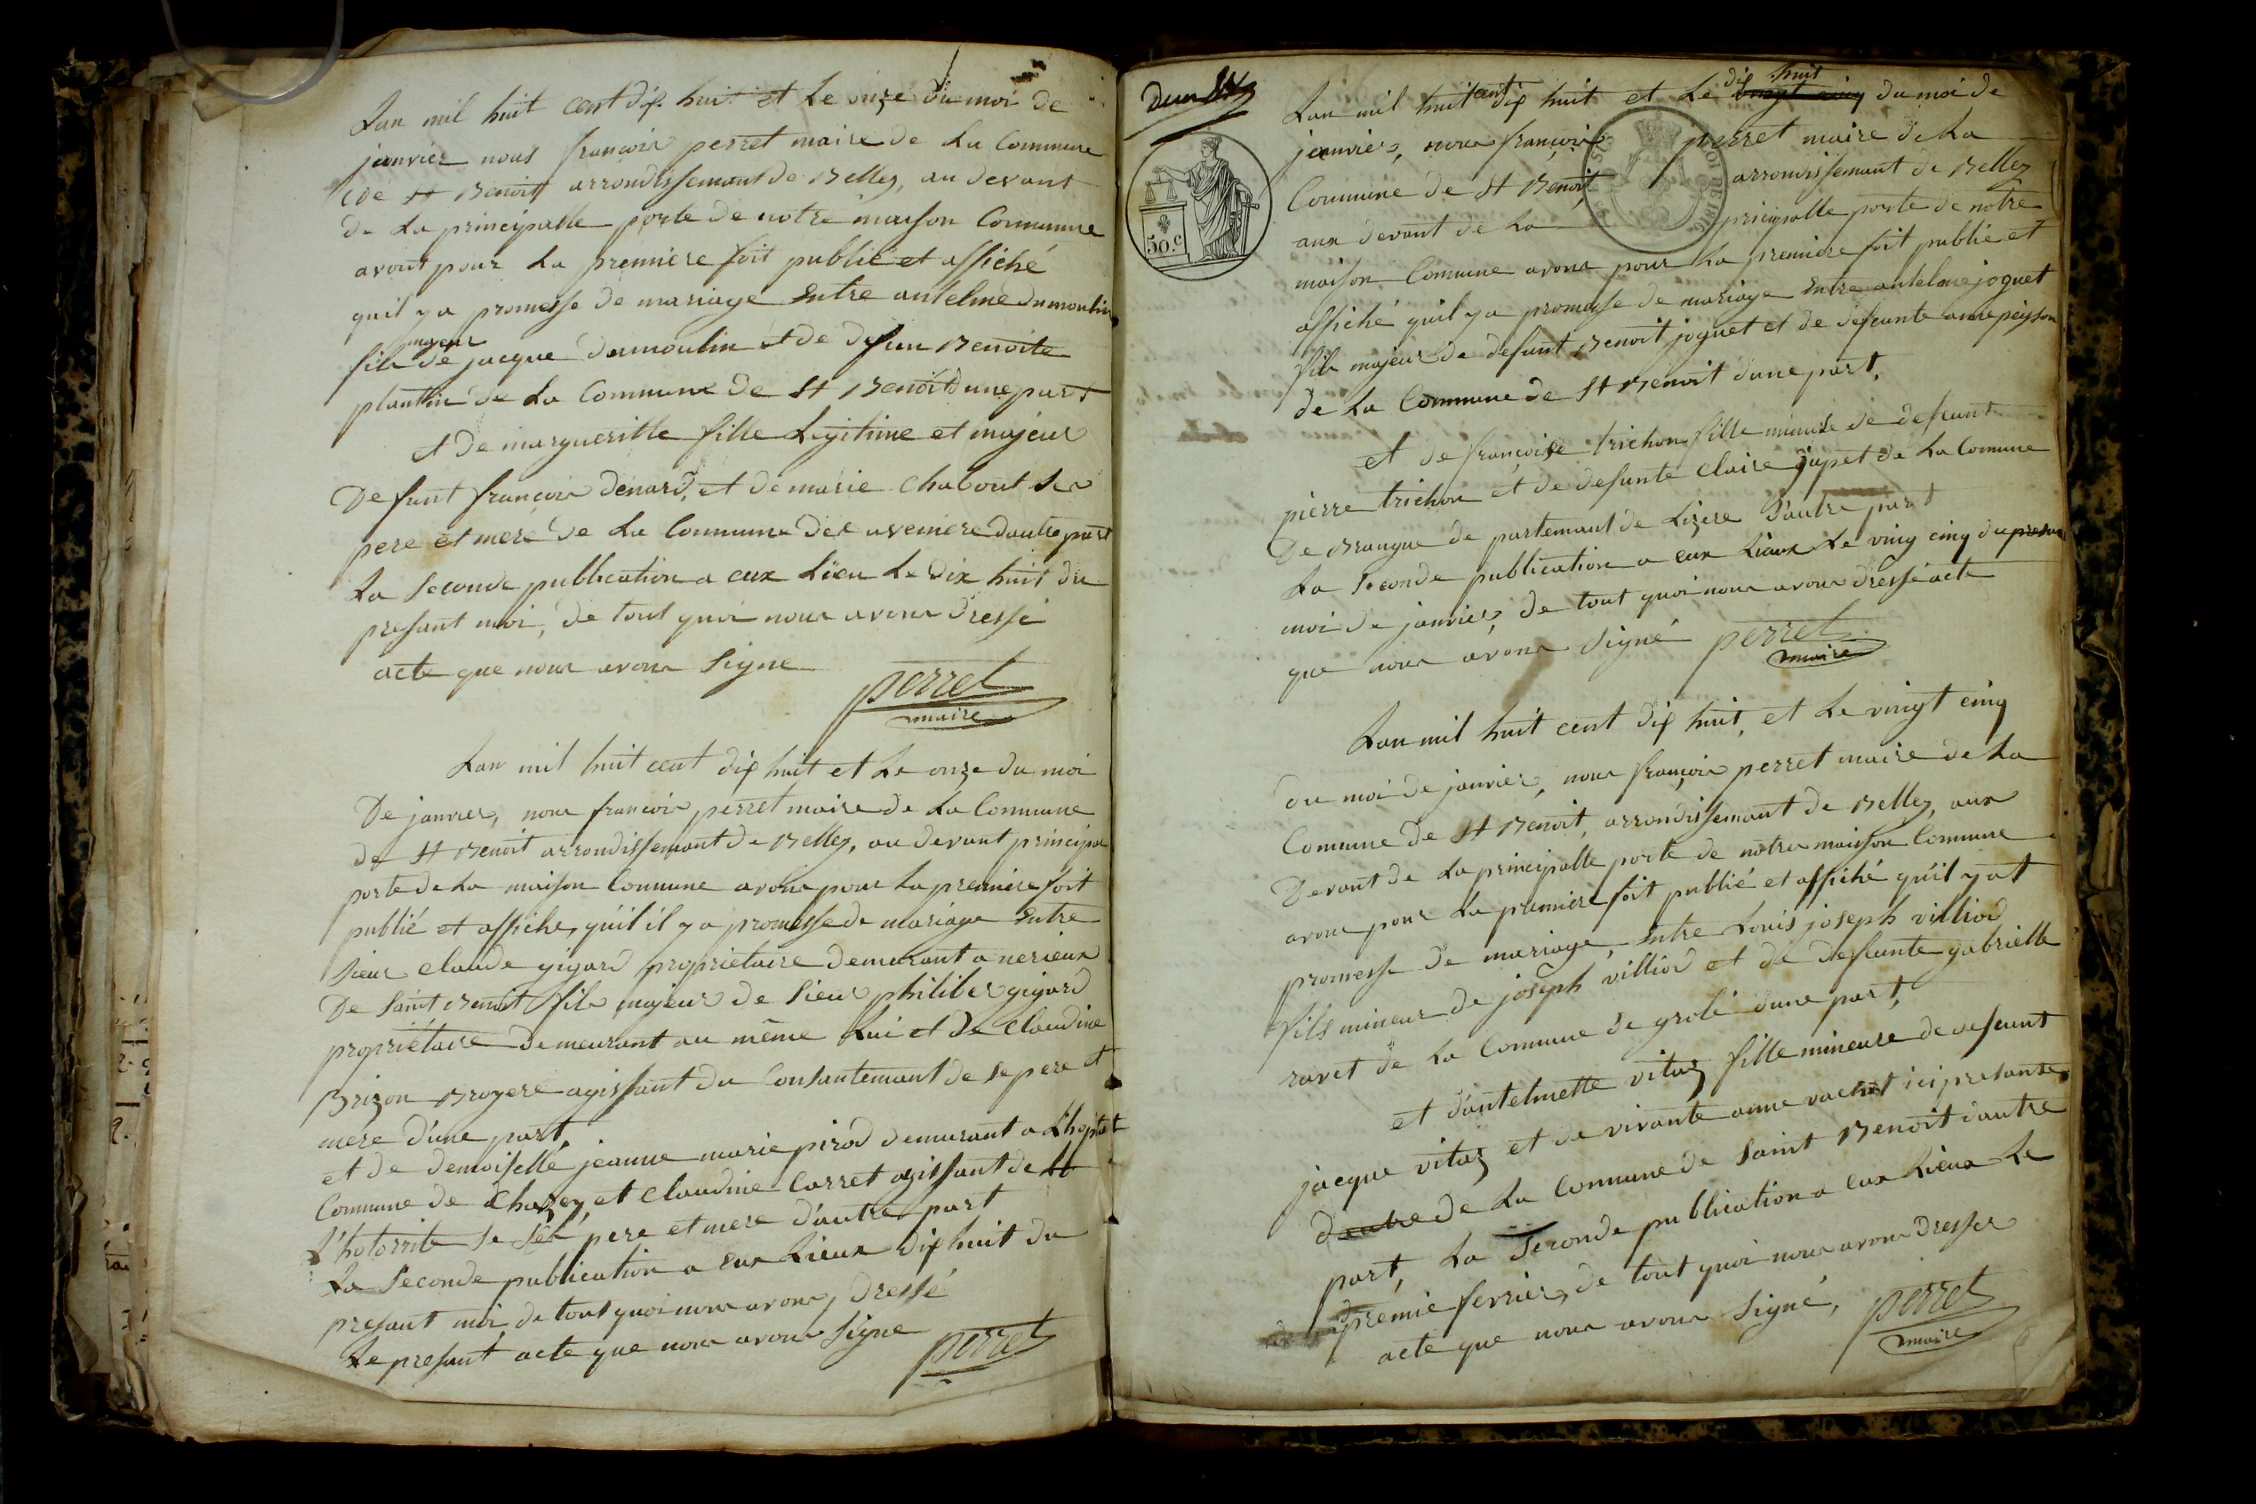 Lan mil huit cent dix huit et Le onze du moi de
janvier nous françois perret maire de La Commune
de St Benoit arrondissemant de Belley, au devant
de La principalle porte de notre maison Commune
avont pour La premiere foit publié et affiché
quil y a promesse de mariage Entre antelme dumoulin
majeur
fils de jacque dumoulin et de defun Benoite
plantin de La Commune de St Benoit dune part
et De margueritte fille Légitime et majeur
Defunt françois denard, et de marie Chabout Ses
pere et mere de La Commune des aveniere dautre part
La Seconde publication a eux Lieu Le dix huit du
presant moi, de tout quoi nous avons dressé
acte que nous avons Signe
perret
maire
Lan mil huit cent dix huit et Le onze du moi
De janvier, nous françois perret maire de La Commune
de St Benoit arrondissemant de Belley, au devant principal
porte de La maison Commune avons pour La premiere foit
publié et affiché, qu'il il y a promesse de mariage Entre
Sieur Claude gigard propriétaire demeurant a nerieux
De Saint Benoit fils majeur de Sieur philiber gigard
propriétaire demeurant au même Lui et de Claudine
Brizon Broyere agissant du Consantemant de se pere et
mere d'une part,
et de demoiselle jeanne marie pirod demurant a Lhopitat
Commune de Chazey, et Claudine Carret agissant de
L'hotorrite se Ses pere et mere d'autre part
La Seconde publication a eux Lieux dix huit du
presant moi de tout quoi nous avons, dressé
Le presant acte que nous avons Signe
perret
deux
dix huit
Lan mil huit cent dix huit et Le vingt cinq du moi de
janvier, nous françois perret maire de La
Commune de St Benoit arrondissemant de Belley
aux devant de La principalle porte de notre
maison Comune avons pour La premiere foit publié et
affiché quil y a promesse de mariage Entre antelme joguet
fils majeur de defunt Benoit joguet et de defeunte anne peysson
de La Commune de St Benoit dune part,
et de françoise trichon fille mineure de defeunt
pierre trichon et de defunte Claire jupet de La Comune
De Brangue de partemant de Lizere D'autre part
La Seconde publication a eux Lieux Le ving cinq du presant
moi de janvier, de tout quoi nous avons dressé acte
que nous avons Signé perret
maire
50.c
Lan mil huit cent dix huit, et Le vingt cinq
du moi de janvier, nous françois perret maire de La
Comune de St Benoit, arrondissemant de Belley, aux
Devant de La principalle porte de notre maison Commune
avons pour La premiere foit publié et affiché qu'il y at
promesse de mariage, Entre Louis joseph villiod
fils mineur de joseph villiod et de defeunte gabrielle
ravet de La Commune de grolé dune part,
et d'antelmette vitoz fille mineure de defeunt
jacque vitoz et de vivante anne vachet ici presante
dautre de La Commune de Saint Benoit d'autre
part, La Seconde publication a eux Lieux Le
premié ferrier, de tout quoi nous avons dresser
acte que nous avons Signé, perret
maire